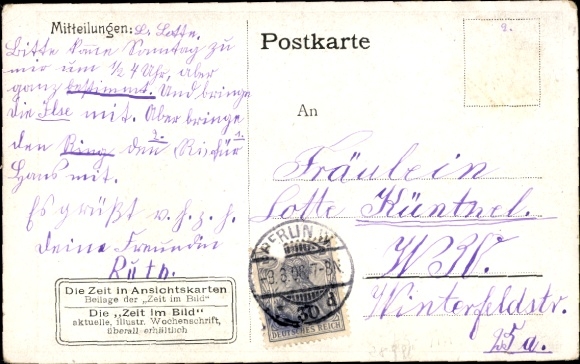 Mitteilungen: L. Lotte.
Bitte komme Sonntag zu
mir um 1/2 4 Uhr, aber
ganz bestimmt. Und bringe
die Ilse mit. Aber bringe
den Ring den für
Hans mit.
Es grüßt v. h. z. h.
deine Freundin
Ruth.
Die Zeit in Ansichtskarten
Beilage der „Zeit im Bild"
Die „Zeit im Bild"
aktuelle, illustr. Wochenschrift,
überall erhältlich
Postkarte
An
Fräulein
Lotte Küntzel.
W 30.
Winterfeldstr.
25a.
BERLIN W.
3.08.7-8N.
30
DEUTSCHES REICH